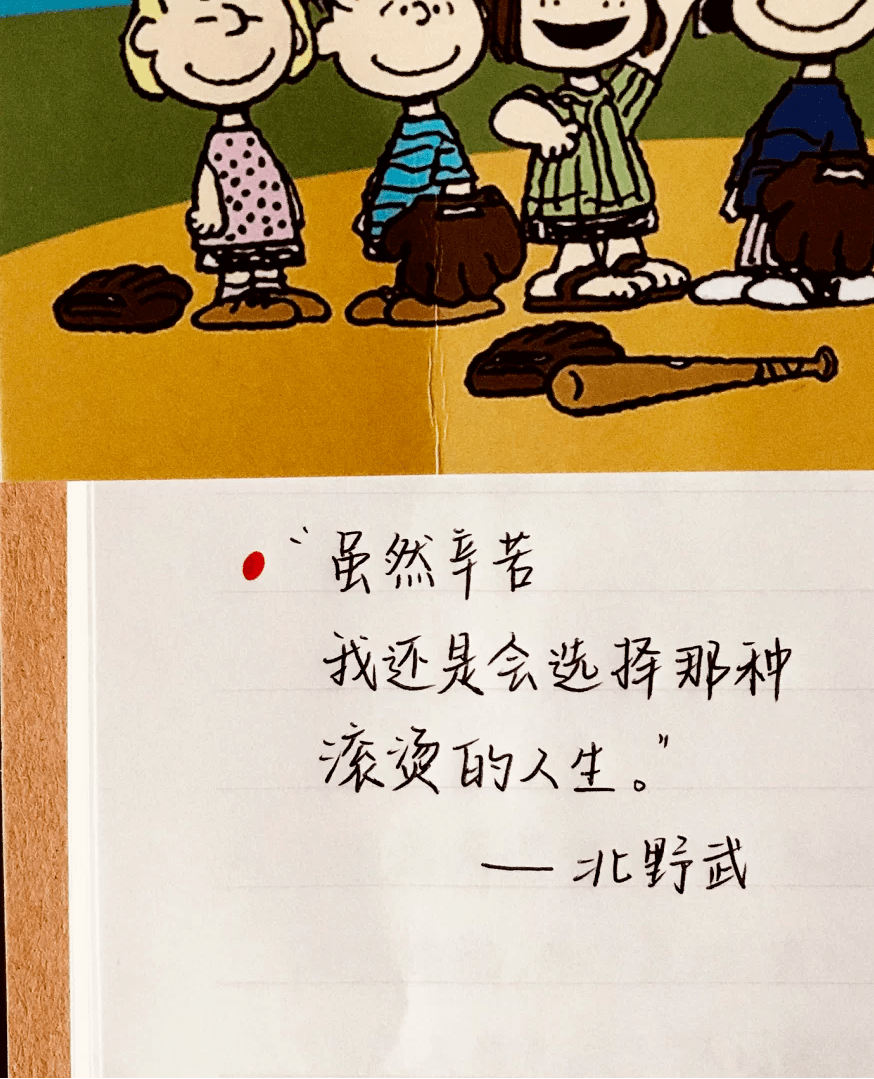 “虽然辛苦
我还是会选择那种
滚烫的人生。”
— 北野武